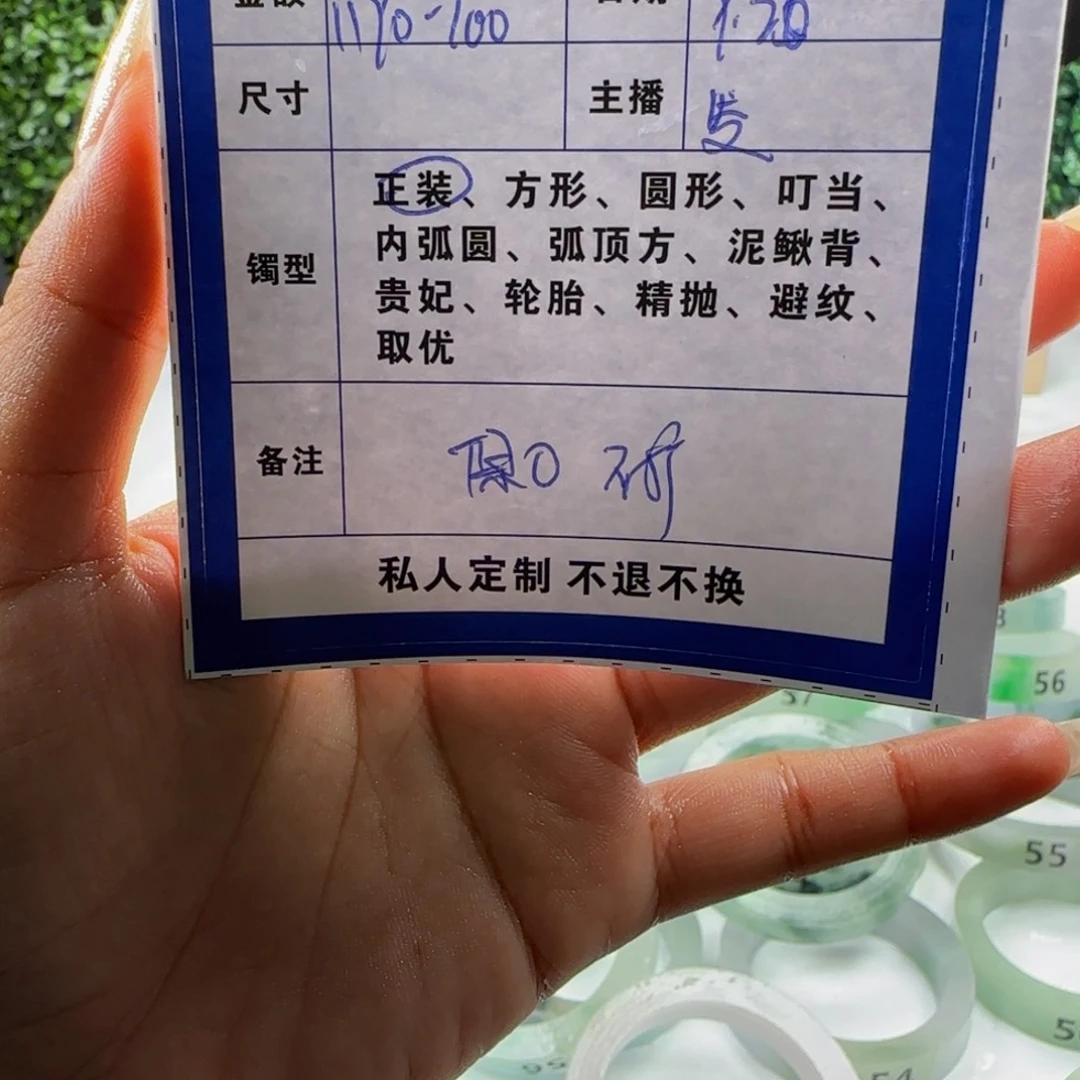 1190-100
1.20
尺寸
主播
镯型
正装、方形、圆形、叮当、
内弧圆、弧顶方、泥鳅背、
贵妃、轮胎、精抛、避纹、
取优
备注
私人定制 不退不换
56
57
55
54